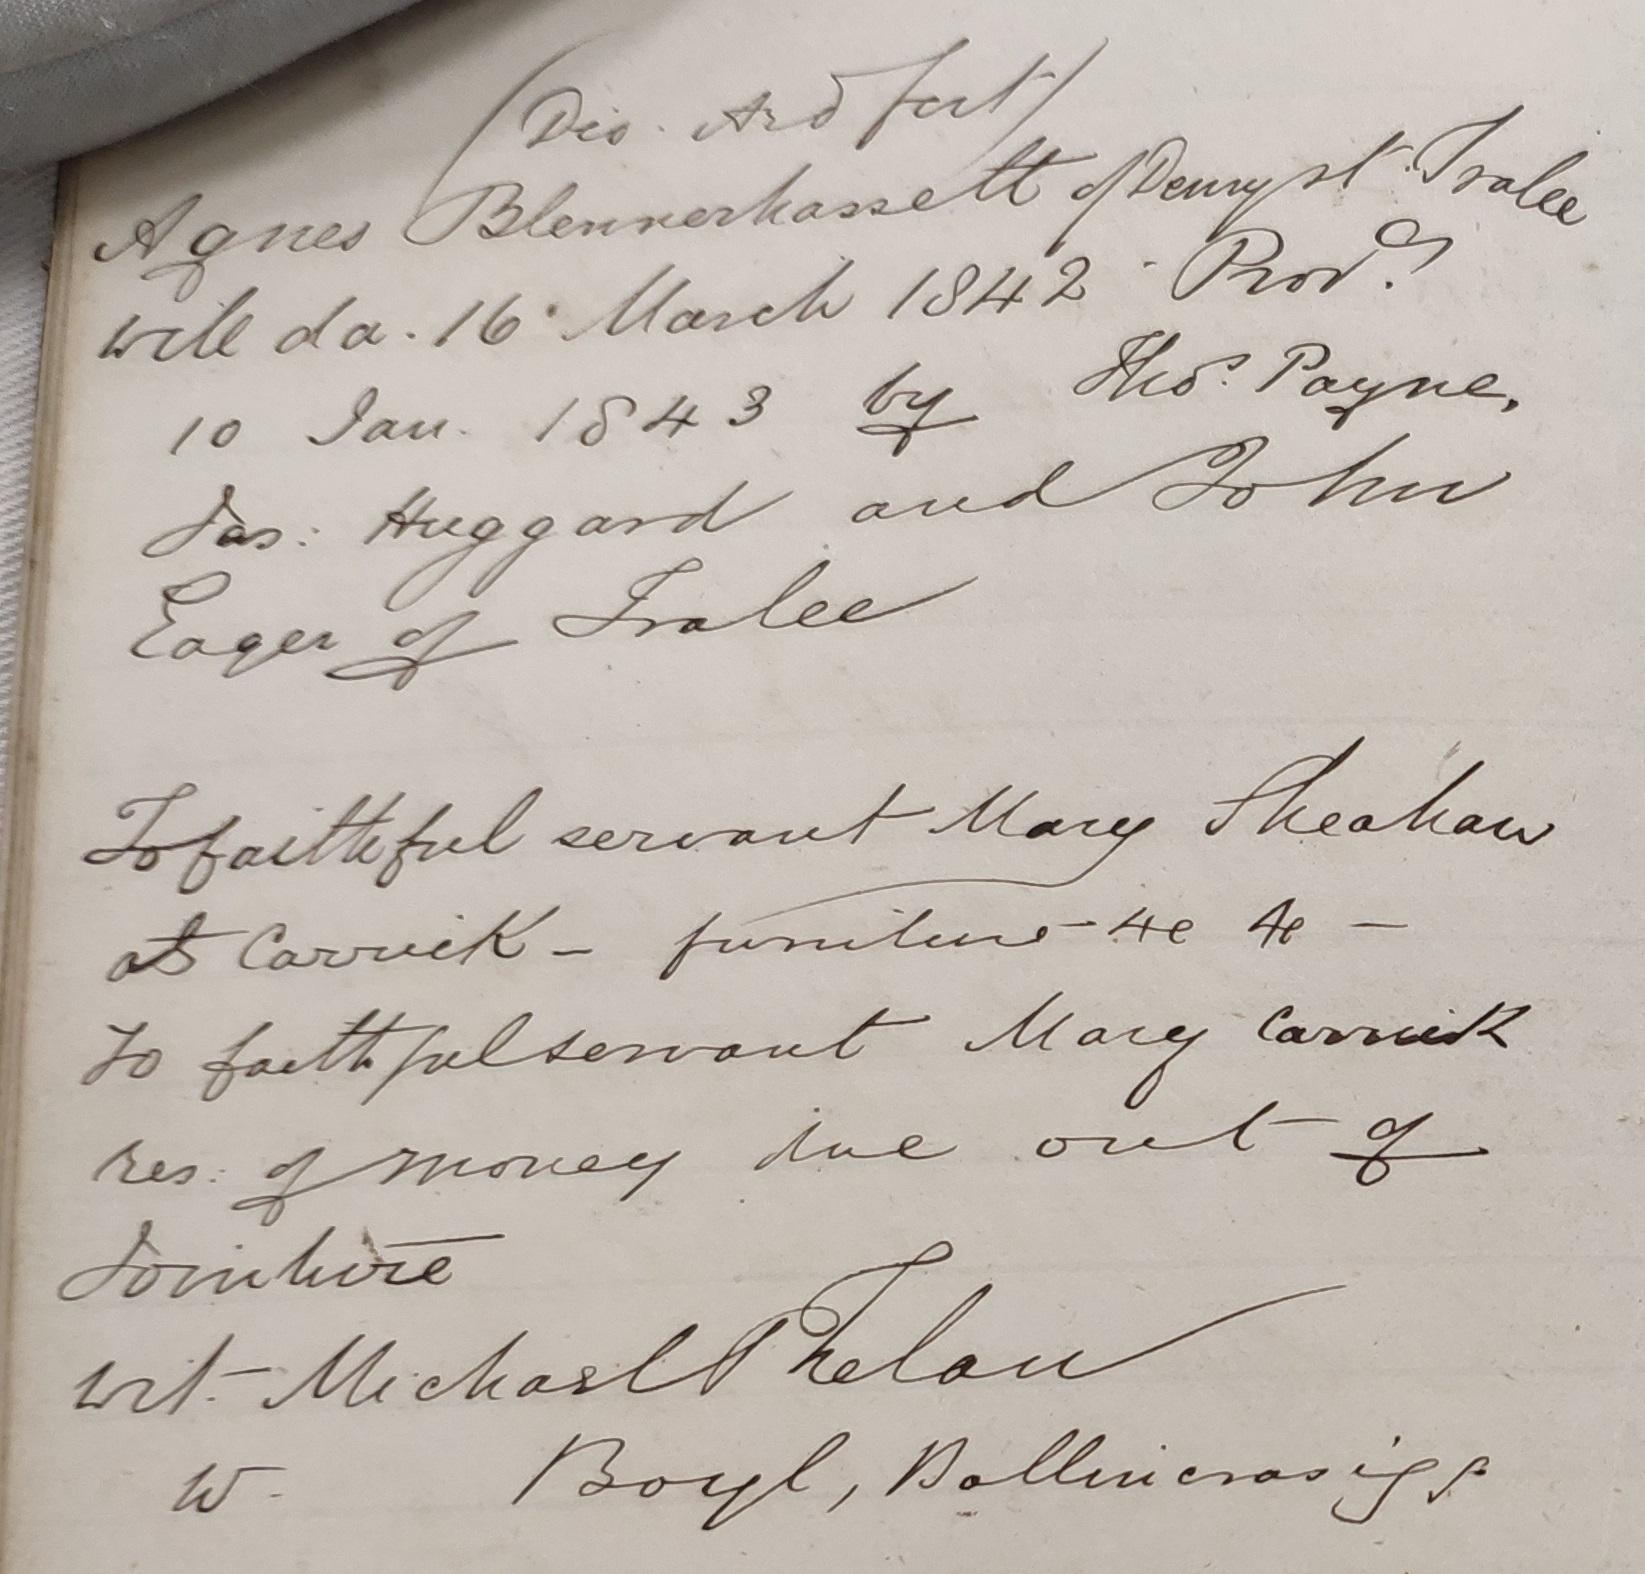 (Dio. Ardfert)
Agnes Blennerhassett of Denny st. Tralee
will da. 16 March 1842 Prov.
10 Jan. 1843 by Thos. Payne,
Jas: Huggard and John
Eager of Tralee
To faithful servant Mary Sheahan
at Carrick - furniture &c &c -
To faithful servant Mary Carrick
res: of money due out of
Jointure
wit. Michael Phelan
W. Boyl,